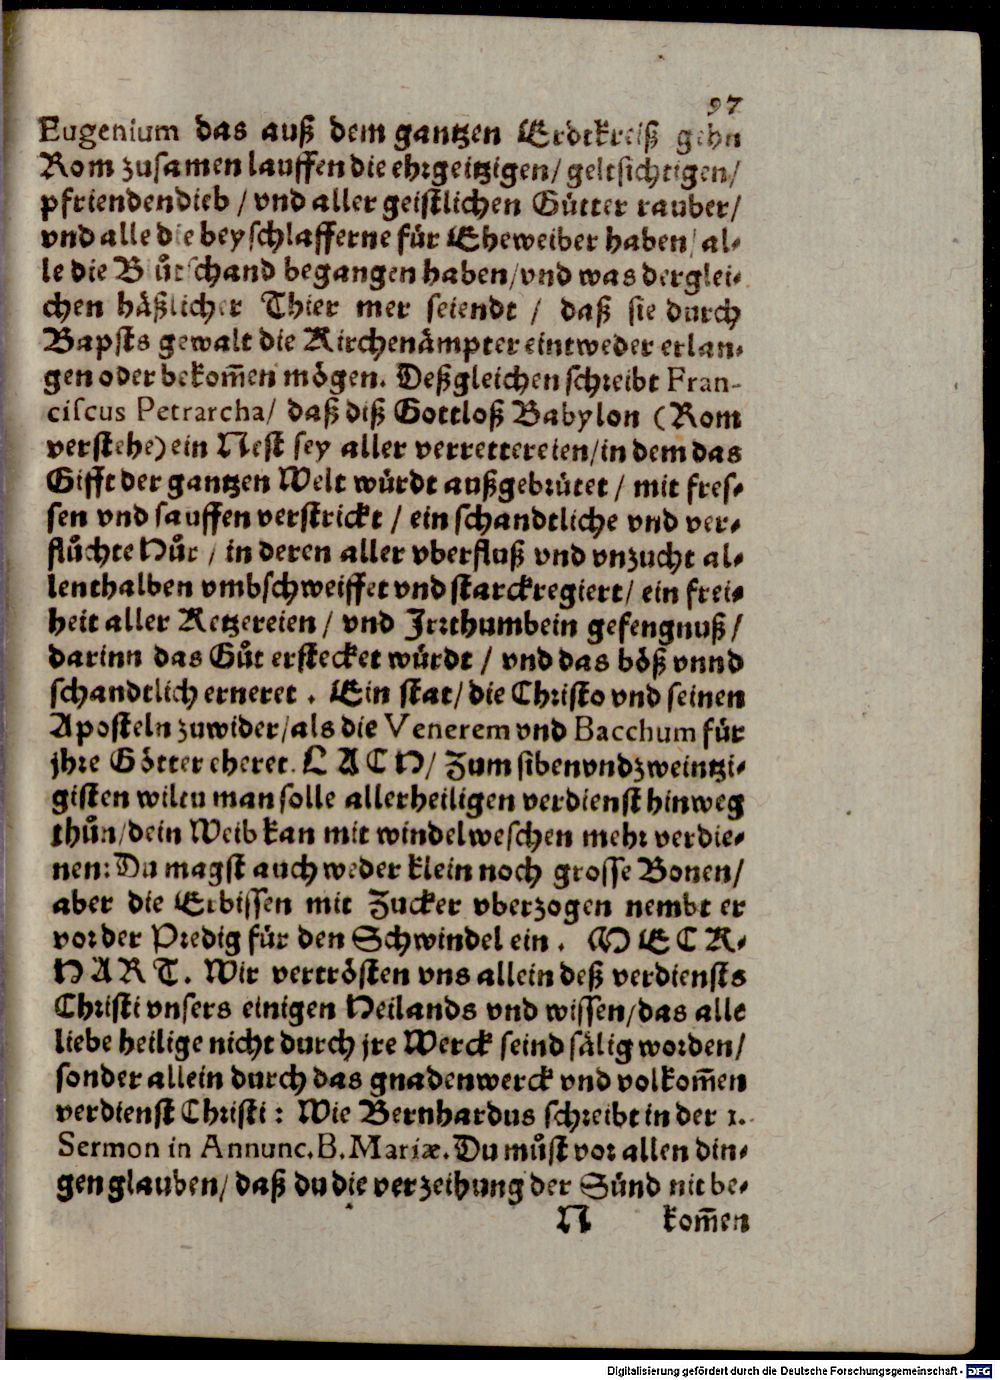 97
Eugenium das auß dem gantzen Erdtkreiß gehn
Rom zusamen lauffen die ehrgeitzigen/ geltsichtigen/
pfriendendieb / vnd aller geistlichen Gütter rauber/
vnd alle die beyschlafferne für Eheweiber haben/ al-
le die Blůtschand begangen haben/vnd was derglei-
chen häßlicher Thier mer seiendt / daß sie durch
Bapsts gewalt die Kirchenämpter eintweder erlan-
gen oder bekom̃en mögen. Deßgleichen schreibt Fran-
ciscus Petrarcha/ daß diß Gottloß Babylon (Rom
verstehe) ein Nest sey aller verrettereien/in dem das
Gifft der gantzen Welt würdt außgebrütet / mit fres-
sen vnd sauffen verstrickt / ein schandtliche vnd ver-
flůchte Hůr / in deren aller vberfluß vnd vnzucht al-
lenthalben vmbschweiffet vnd starck regiert/ ein frei-
heit aller Ketzereien / vnd Irrthumb ein gefengnuß /
darinn das Gůt erstecket würdt / vnd das böß vnnd
schandtlich erneret . Ein stat/ die Christo vnd seinen
Aposteln zuwider/als die Venerem vnd Bacchum für
jhre Götter eheret. LACH/ Zum sibenvndzweintzi-
gisten wiltu man solle allerheiligen verdienst hinweg
thůn/dein Weib kan mit windelweschen mehr verdie-
nen: Du magst auch weder klein noch grosse Bonen/
aber die Erbissen mit Zucker vberzogen nembt er
vor der Predig für den Schwindel ein . MECK-
HART. Wir vertrösten vns allein deß verdiensts
Christi vnsers einigen Heilands vnd wissen/das alle
liebe heilige nicht durch jre Werck seind sälig worden/
sonder allein durch das gnadenwerck vnd volkom̃en
verdienst Christi : Wie Bernhardus schreibt in der 1.
Sermon in Annunc. B. Mariæ. Du můst vor allen din-
gen glauben/ daß du die verzeihung der Sünd nit be-
N kom̃en
Digitalisierung gefördert durch die Deutsche Forschungsgemeinschaft - DFG